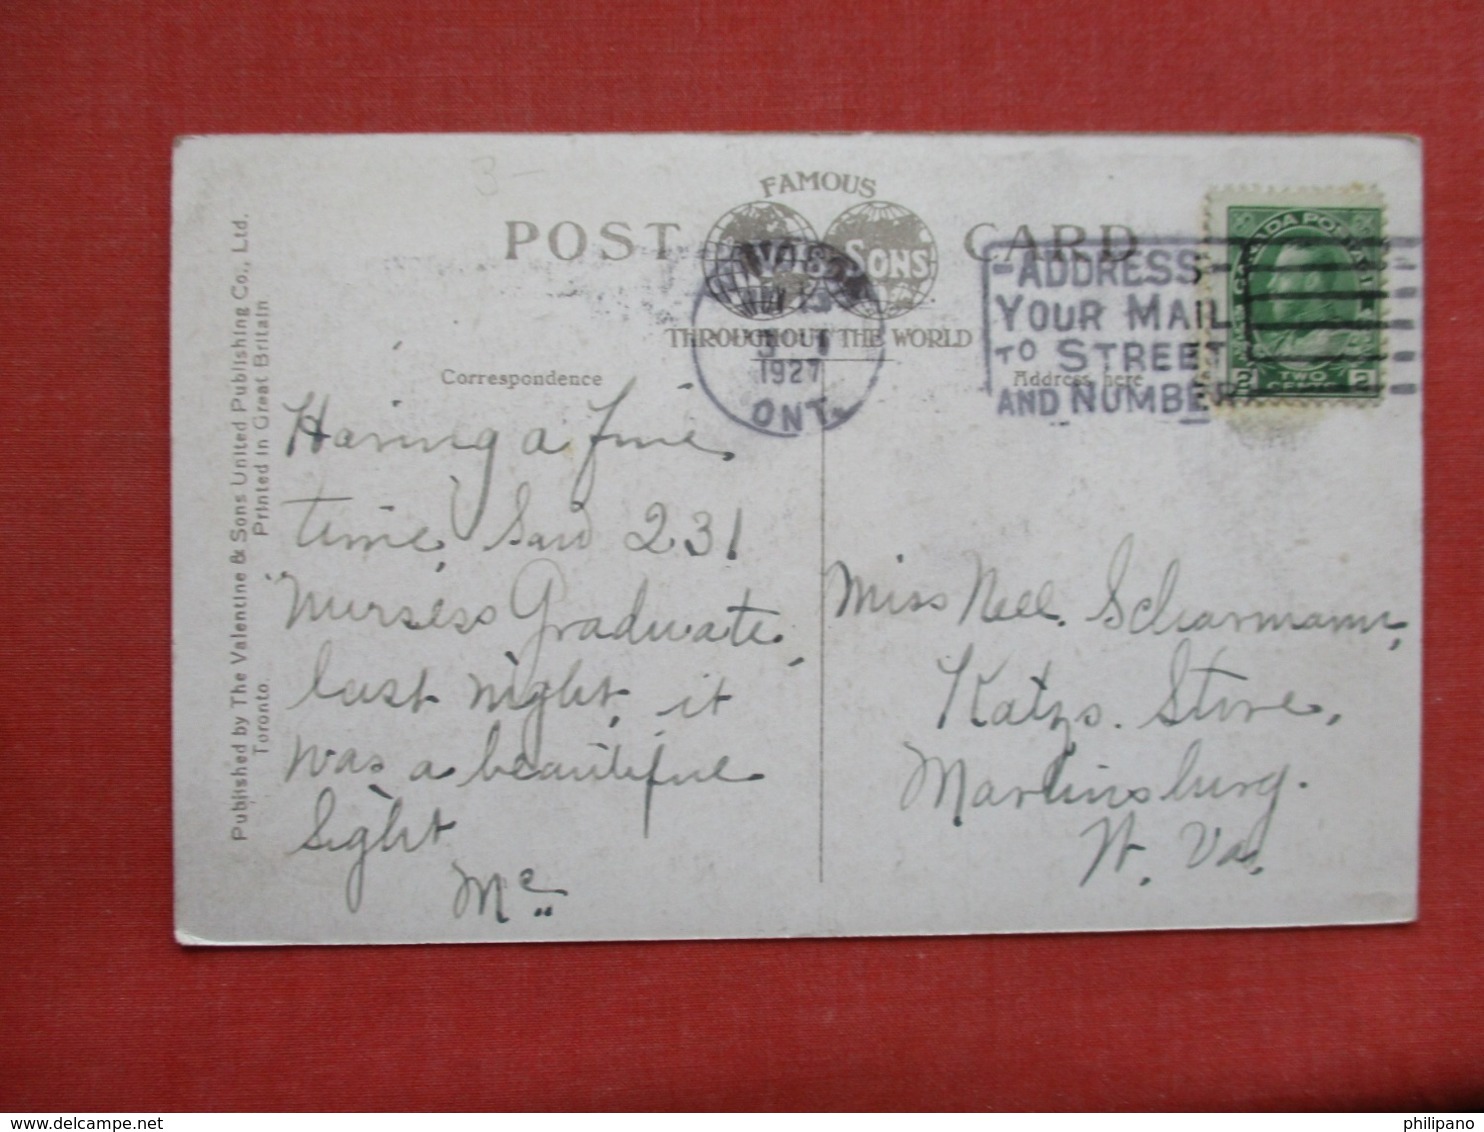 3-
FAMOUS
POST CARD
SONS
THROUGHOUT THE WORLD
1927
ONT.
-ADDRESS-
YOUR MAIL
TO STREET
AND NUMBER
CANADA POSTAGE
2 TWO CENTS 2
Correspondence
Address here
Having a fine
time, Saw 231
Nurses Graduate
last night, it
was a beautiful
Sight
Mc
Miss Nell. Scharmann,
Katzs. Store,
Martinsburg.
W. Va.
Published by The Valentine & Sons United Publishing Co., Ltd.
Toronto. Printed in Great Britain
delcampe.net
philipano